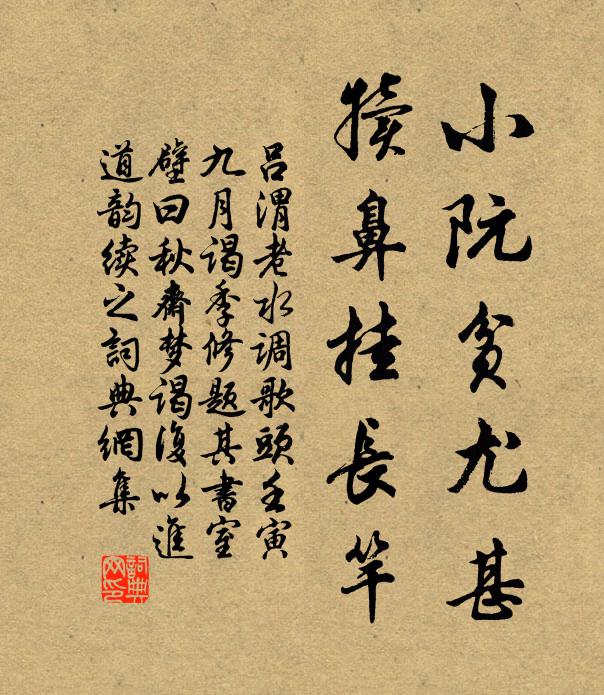 小阮贫尤甚
犊鼻挂長竿
吕渭老水调歌頭壬寅
九月谒季修题其書室
壁曰秋斋梦谒復以進
道韵续之詞典網集
詞典網印